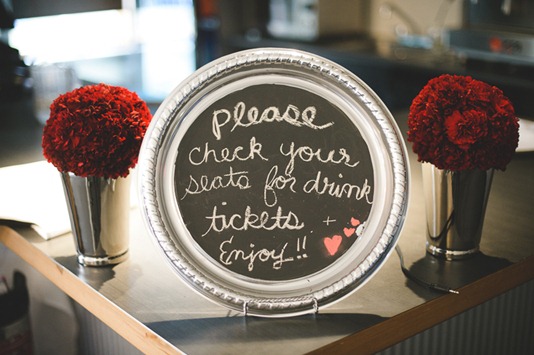 please
check your
seats for drink
tickets +
Enjoy!!